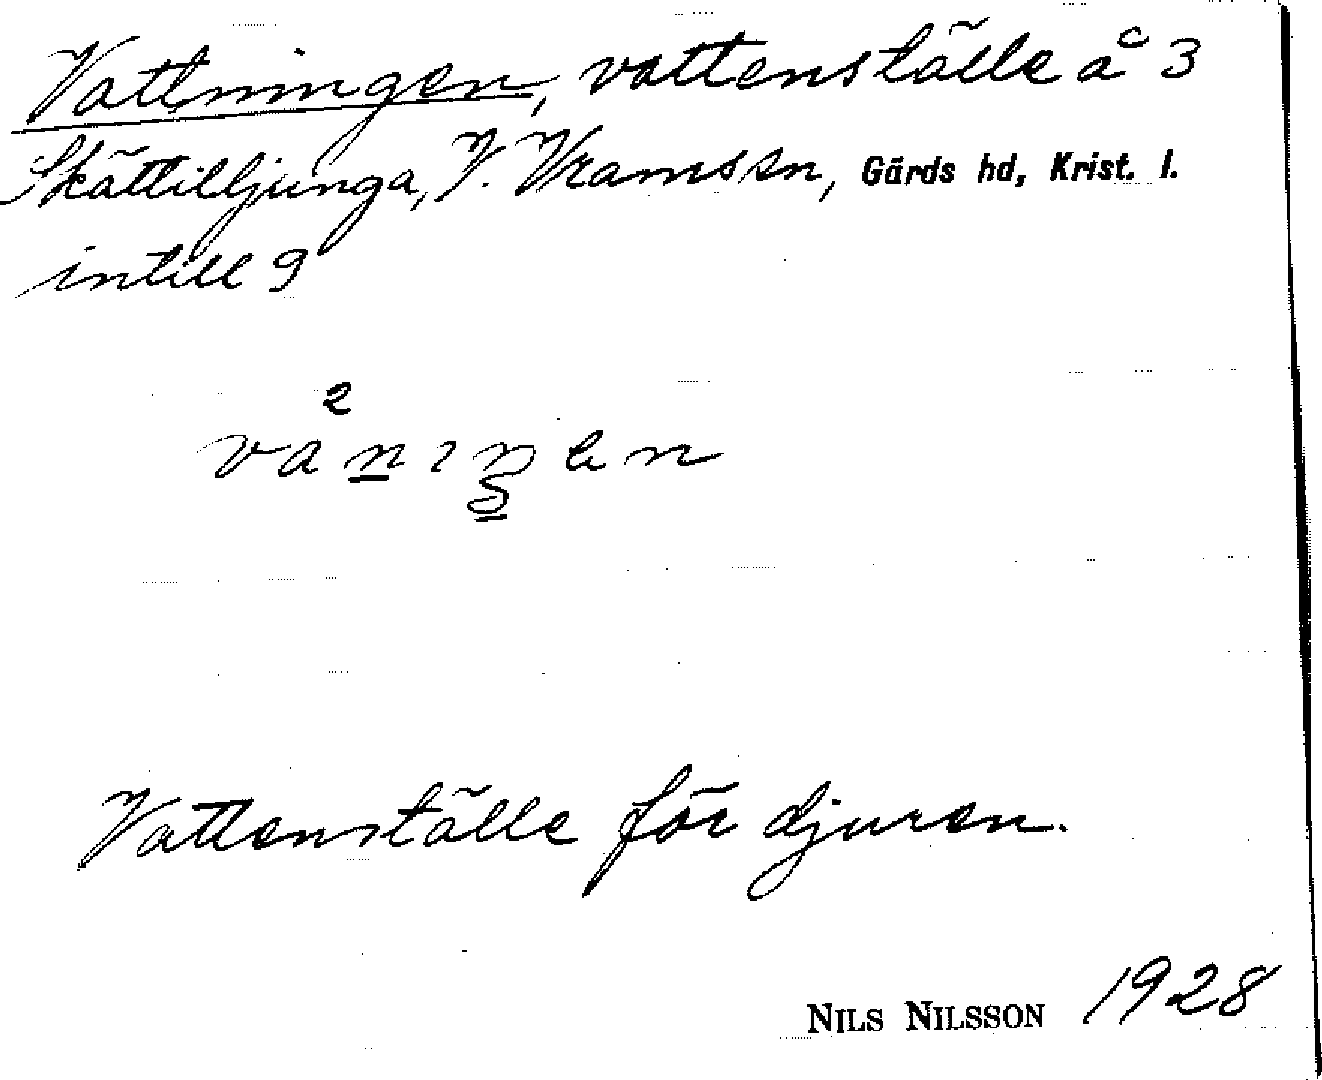 Vattningen, vattenställe å 3
Skättilljunga, V. Vramssn, Gärds hd, Krist. l.
intill 9
Vattenställe för djuren.
NILS NILSSON 1928